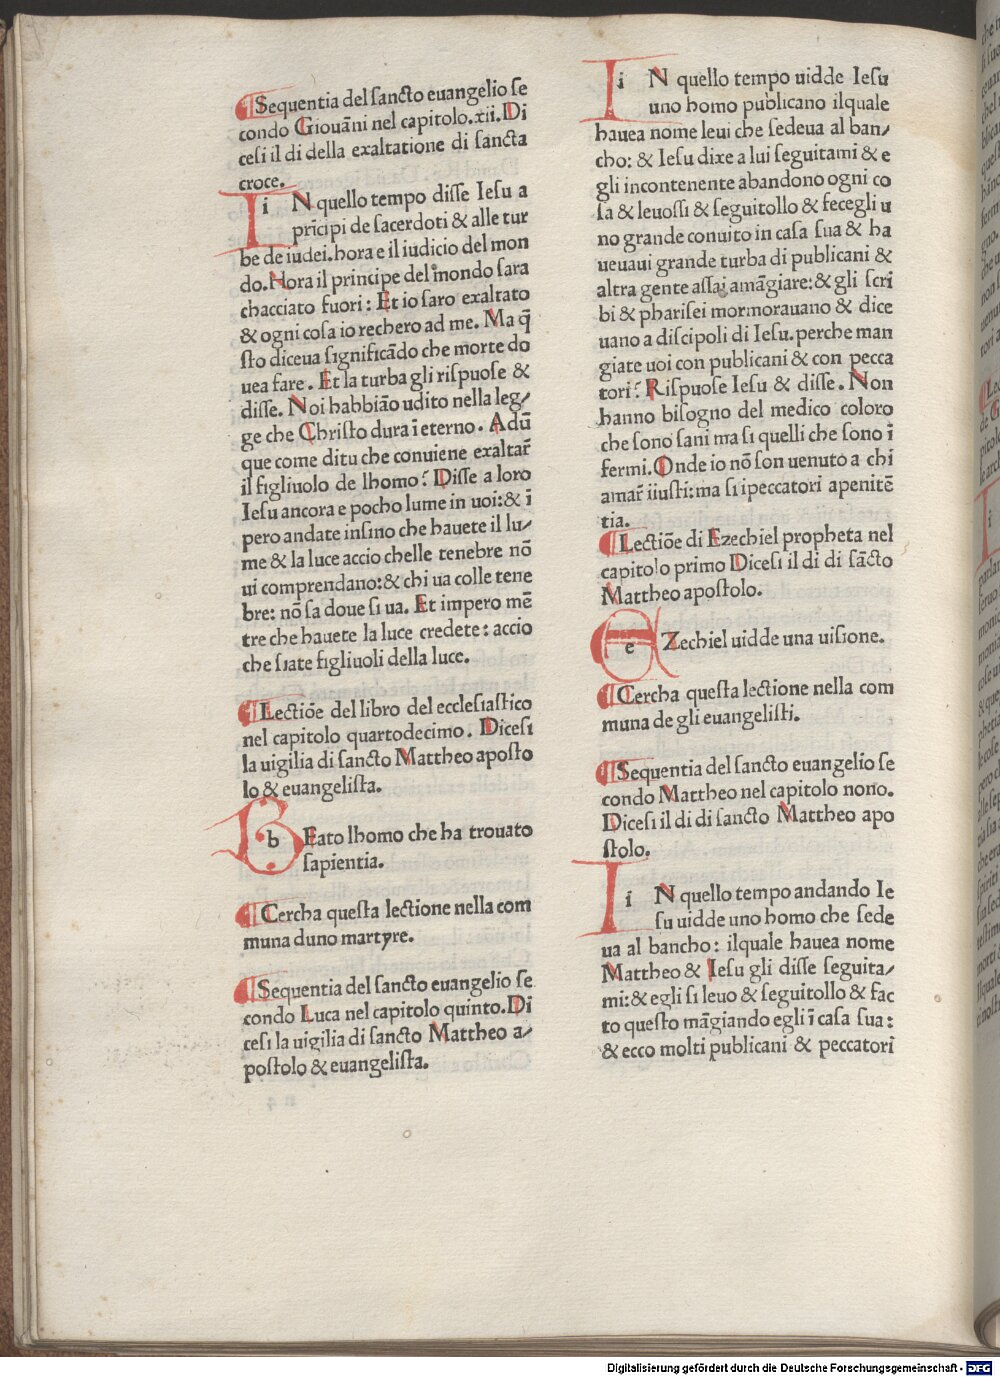 ¶Sequentia del sancto euangelio se
condo Giouāni nel capitolo.xii.Di
cesi il di della exaltatione di sancta
croce.
iN quello tempo disse Iesu a
prīcipi de sacerdoti & alle tur
be de iudei.hora e il iudicio del mon
do.Hora il principe del mondo sara
chacciato fuori: Et io saro exaltato
& ogni cosa io rechero ad me. Ma q̄
sto diceua significādo che morte do
uea fare. Et la turba gli rispuose &
disse. Noi habbiāo udito nella leg/
ge che Christo dura ī eterno. Adū
que come ditu che conuiene exaltar̄
il figliuolo de lhomo? Disse a loro
Iesu ancora e pocho lume in uoi:& ī
pero andate insino che hauete il lu/
me & la luce accio chelle tenebre nō
ui comprendano:& chi ua colle tene
bre: nō sa doue si ua. Et impero mē
tre che hauete la luce credete: accio
che siate figliuoli della luce.
¶Lectiōe del libro del ecclesiastico
nel capitolo quartodecimo. Dicesi
la uigilia di sancto Mattheo aposto
lo & euangelista.
bEato lhomo che ha trouato
sapientia.
¶Cercha questa lectione nella com
muna duno martyre.
¶Sequentia del sancto euangelio se
condo Luca nel capitolo quinto.Di
cesi la uigilia di sancto Mattheo a/
postolo & euangelista.
iN quello tempo uidde Iesu
uno homo publicano ilquale
hauea nome leui che sedeua al ban/
cho: & Iesu dixe a lui seguitami & e
gli incontenente abandono ogni co
sa & leuossi & seguitollo & fecegli u
no grande conuito in casa sua & ha
ueuaui grande turba di publicani &
altra gente assai amāgiare:& gli scri
bi & pharisei mormorauano & dice
uano a discipoli di Iesu. perche man
giate uoi con publicani & con pecca
tori? Rispuose Iesu & disse. Non
hanno bisogno del medico coloro
che sono sani ma si quelli che sono ī
fermi.Onde io nō son uenuto a chi
amar̄ iiusti:ma si ipeccatori apenitē
tia.
¶Lectiōe di Ezechiel propheta nel
capitolo primo Dicesi il di di sācto
Mattheo apostolo.
eZechiel uidde una uisione.
¶Cercha questa lectione nella com
muna de gli euangelisti.
¶Sequentia del sancto euangelio se
condo Mattheo nel capitolo nono.
Dicesi il di di sancto Mattheo apo
stolo.
iN quello tempo andando Ie
su uidde uno homo che sede
ua al bancho: ilquale hauea nome
Mattheo & Iesu gli disse seguita/
mi:& egli si leuo & seguitollo & fac
to questo māgiando egli ī casa sua:
& ecco molti publicani & peccatori
Digitalisierung gefördert durch die Deutsche Forschungsgemeinschaft - DFG